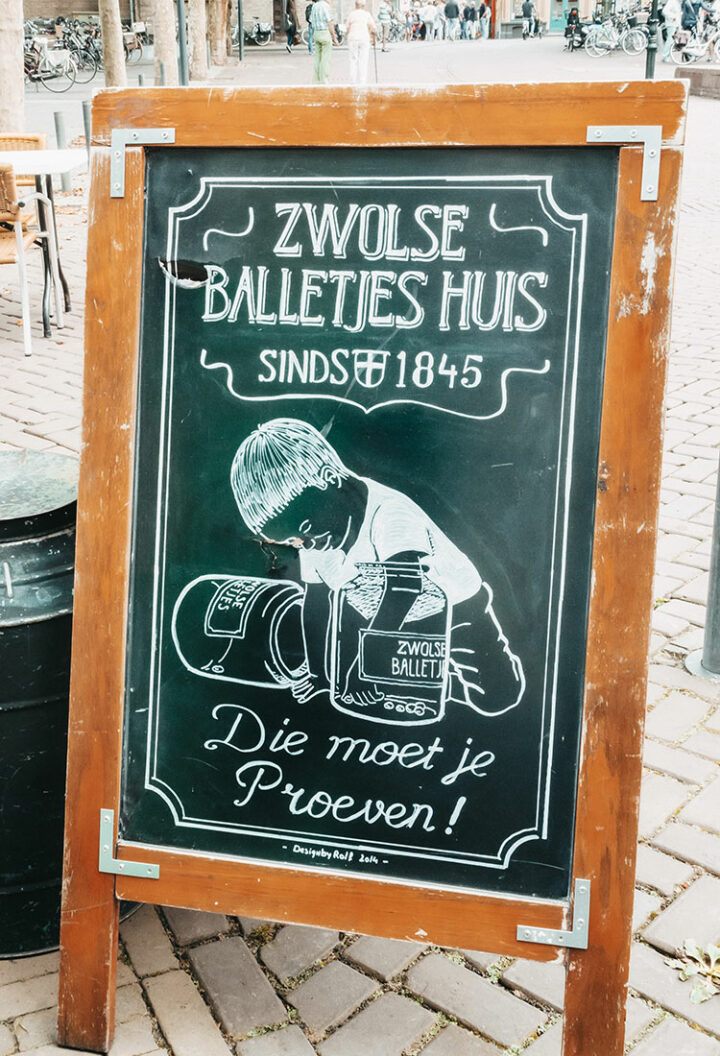 ZWOLSE
BALLETJES HUIS
SINDS 1845
ZWOLSE
BALLETJES
ZWOLSE
BALLETJ
Die moet je
Proeven!
- Design by Rolf 2014 -